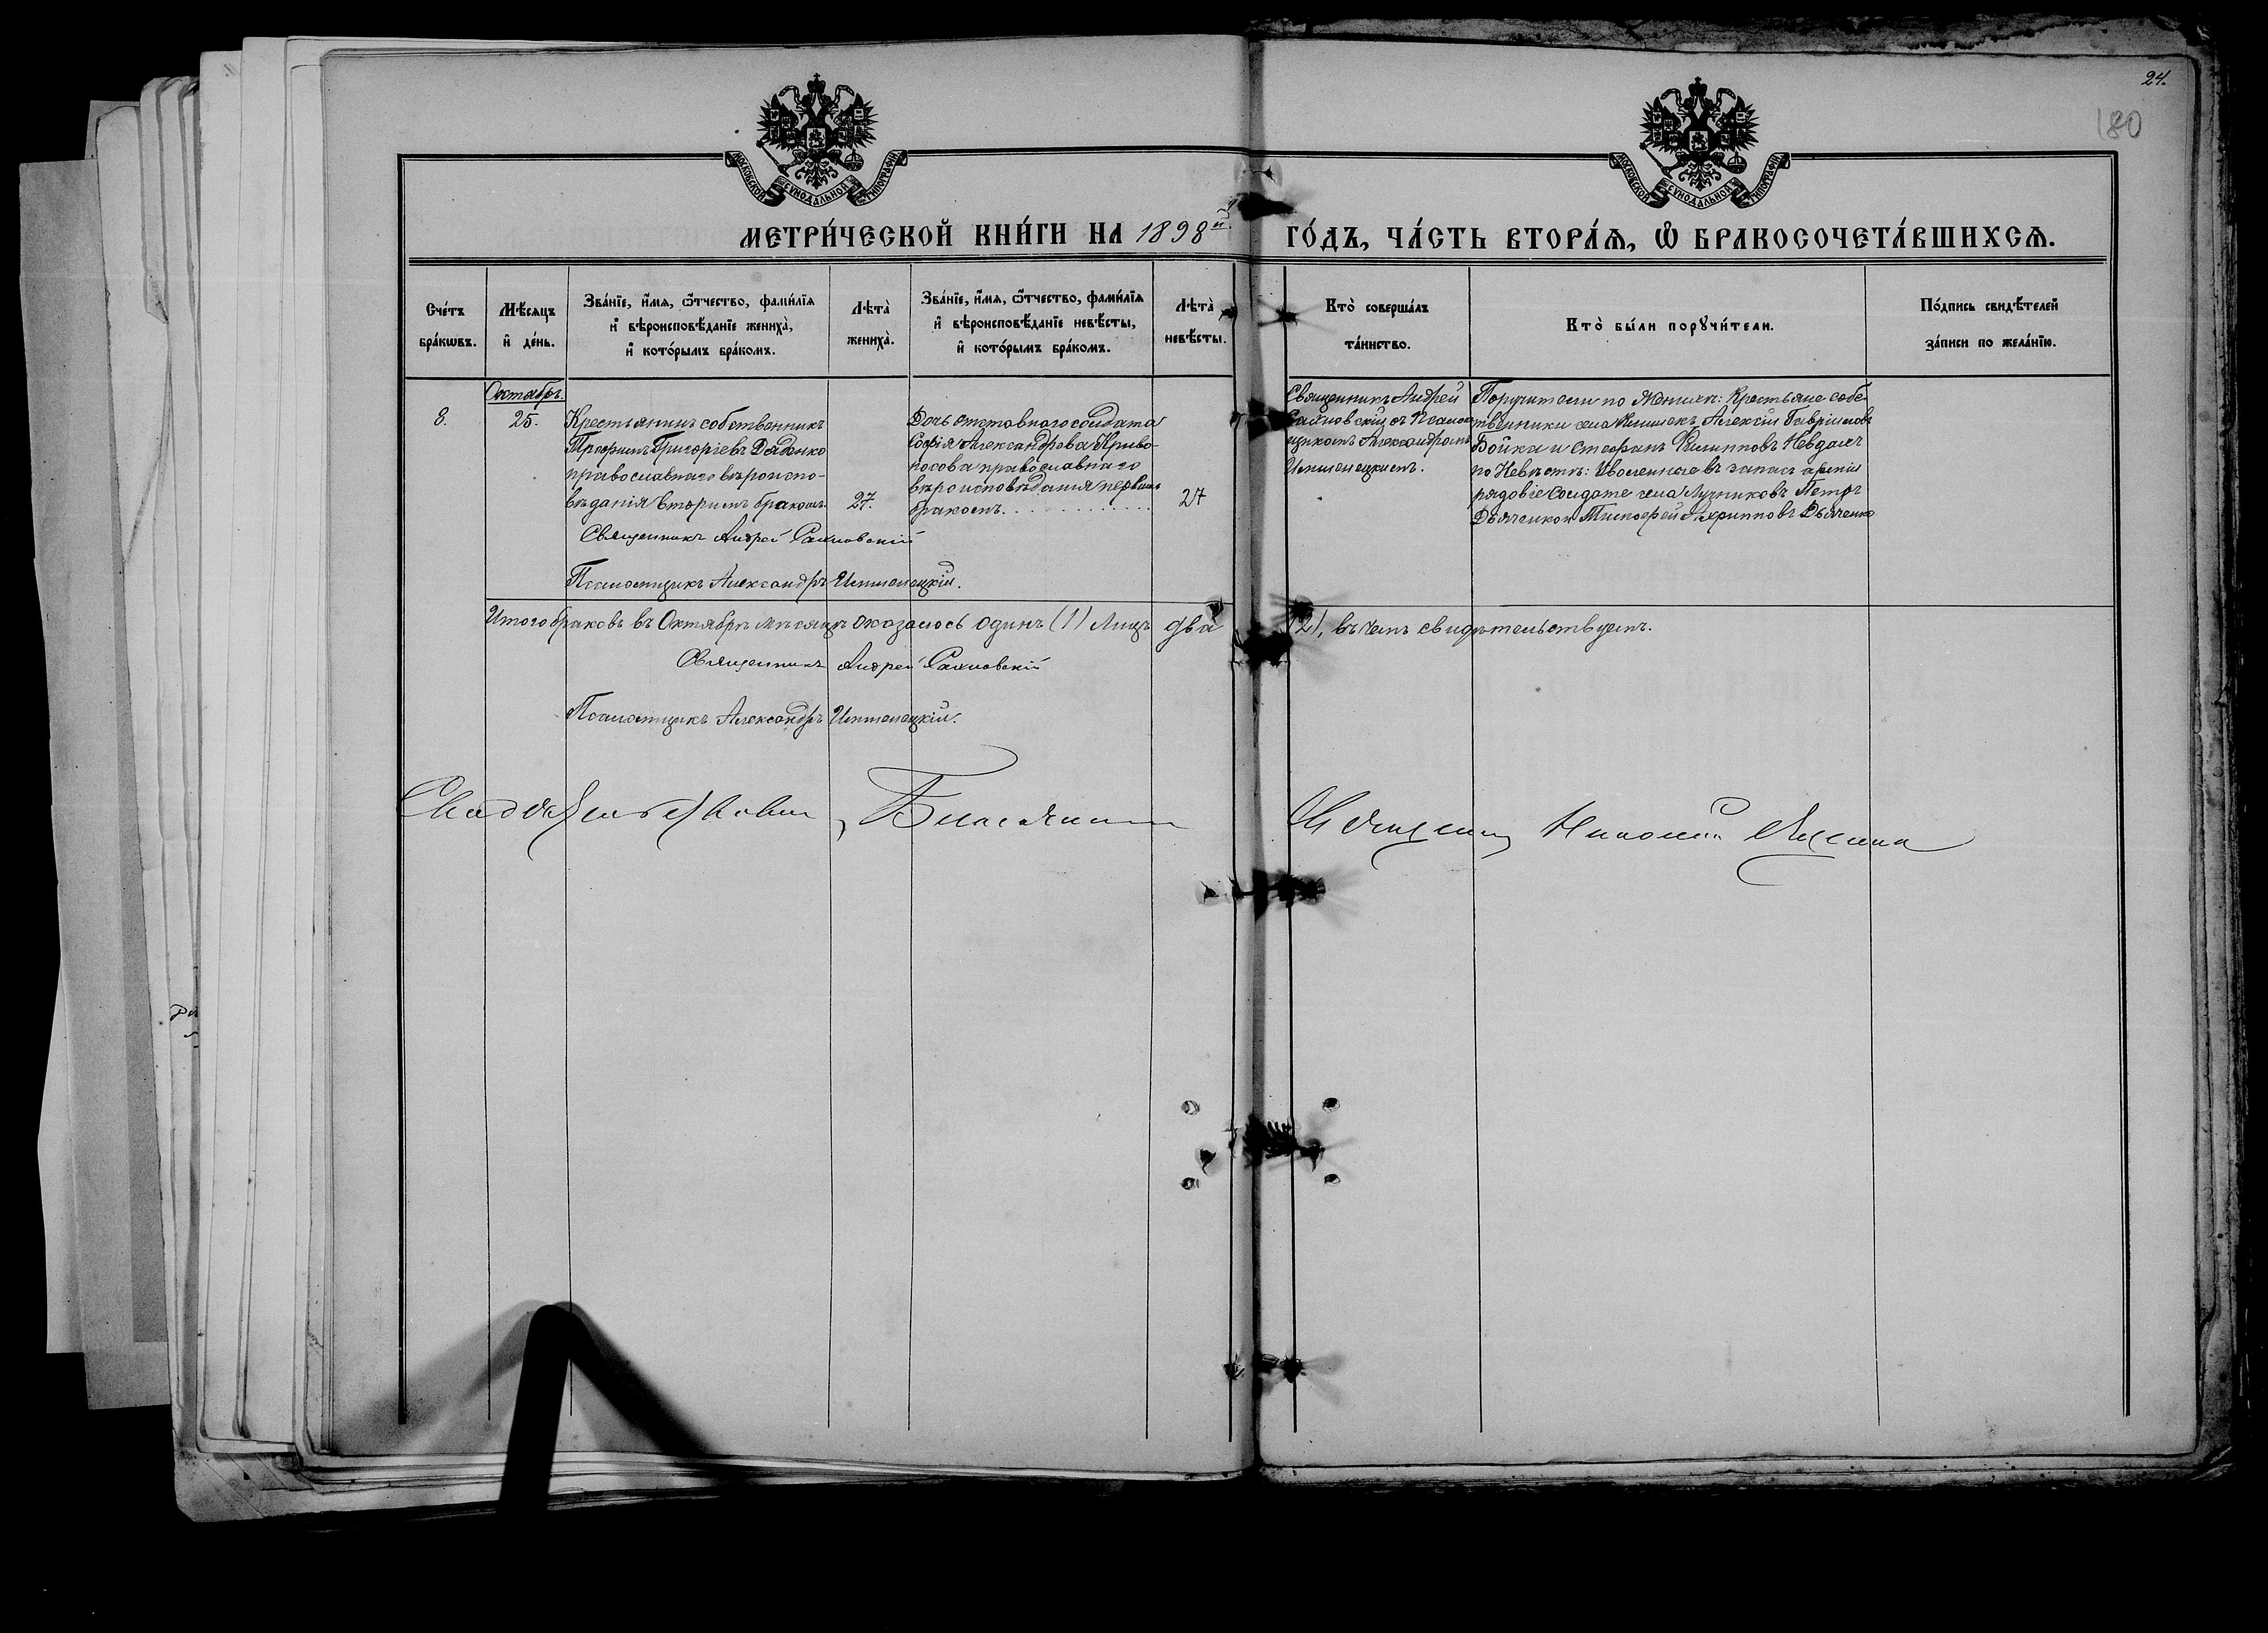 24.
180
МОСКОВСКОЙ СѴНОДАЛЬНОЙ ТИПОГРАФІИ
МОСКОВСКОЙ СѴНОДАЛЬНОЙ ТИПОГРАФІИ
МЕТРИ́ЧЕСКОЙ КНИ́ГИ НА 1898й ГО́ДЪ, ЧА́СТЬ ВТОРА́Ѧ, Ѿ БРАКОСОЧЕТА́ВШИХСѦ.
Сче́тъ бра́кѡвъ.
Мѣ́сяцъ и҆ де́нь.
Зва́нїе, и҆́мѧ, ѻ҆́тчество, фами́лїѧ
и҆ вѣроисповѣ́данїе жениха̀,
и҆ кото́рымъ бра́комъ.
Лѣта̀ жениха̀.
Зва́нїе, и҆́мѧ, ѻ҆́тчество, фами́лїѧ
и҆ вѣроисповѣ́данїе невѣ́сты,
и҆ кото́рымъ бра́комъ.
Лѣта̀ невѣ́сты.
Кто̀ соверша́лъ та́инство.
Кто̀ бы́ли порꙋчи́тели.
По́дпись свидѣ́телей за́писи по жела́нїю.
8.
Октябрь.
25.
Крестьянинъ собственникъ
Трофимъ Григоріевъ Дяденко
православнаго вѣроиспо-
вѣданія вторымъ бракомъ.
27.
Дочь отставного солдата
Софія Александрова Криво-
носова православнаго
вѣроисповѣданія первымъ
бракомъ.
27
Священникъ Андрей
Сахновскій съ Псалом-
щикомъ Александромъ
Поручители по Женихѣ: Крестьяне собс-
твенники села Алексій Гавріиловъ
Бойко и Стефанъ Филипповъ
по Невѣстѣ: Уволенные въ запасъ арміи
рядовіе солдаты села Лучниковъ Петръ
Дьяченко и Тимофей Дьяченко
Священникъ Андрей Сахновскій
Псаломщикъ Александръ
Итого браковъ въ Октябрѣ мѣсяцѣ оказалось одинъ (1) лицъ два (2), въ чемъ свидѣтельствуемъ.
Священникъ Андрей Сахновскій
Псаломщикъ Александръ
Николай